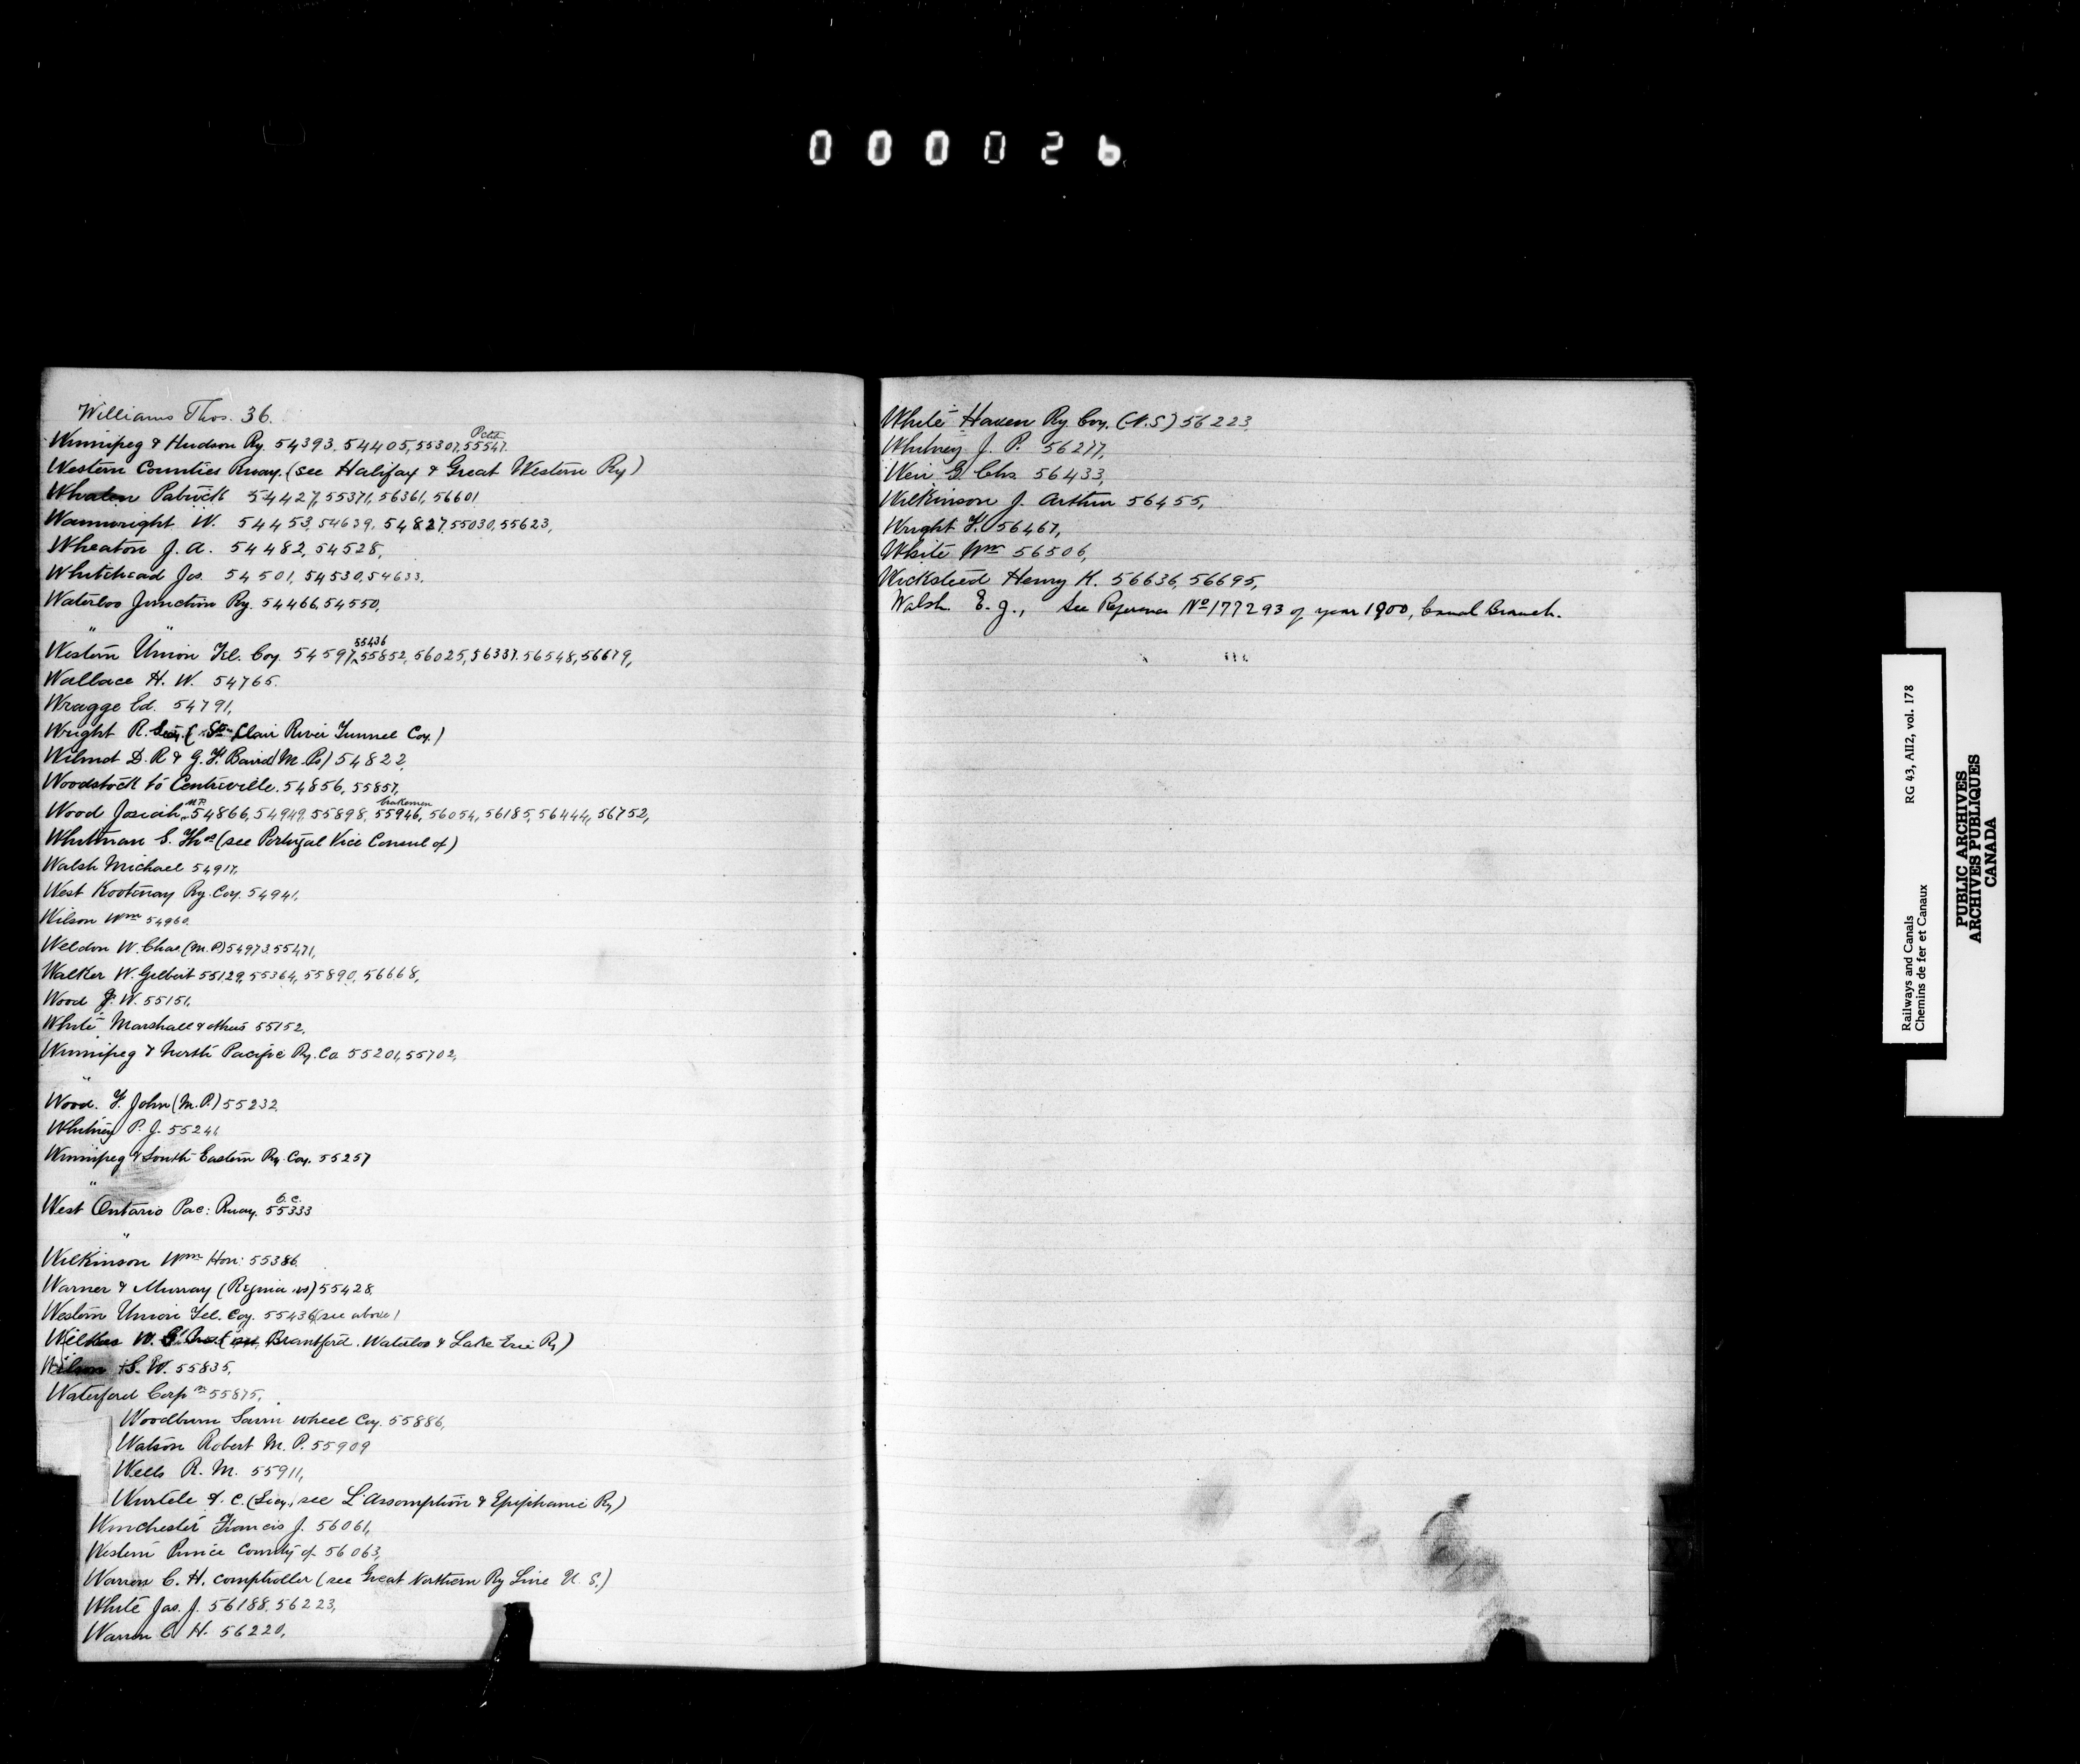 000026
Williams Thos. 36.
Winnipeg & Hudson Ry. 54393, 54405, 55307, 55547.
Western Counties Rway. (see Halifax & Great Western Ry)
Whalen Patrick 54427, 55371, 56361, 56601
Wainwright W. 54453, 54639, 54827, 55030, 55623,
Wheaton J. A. 54482, 54528,
Whitehead Jos. 54501, 54530, 54633,
Waterloo Junction Ry. 54466, 54550,
" "
Western Union Tel. Coy. 54597, 55436 55852, 56025, 56337, 56548, 56679,
Wallace H. W. 54765.
Wragge Ed. 54791,
Wright R. Secy. (St Clair River Tunnel Coy.)
Wilmot D. R & G. F. Baird (M.Ps) 54822,
Woodstock to Centreville. 54856, 55857,
Wood Josiah M.P. 54866, 54949, 55898, brakemen 55946, 56054, 56185, 56444, 56752,
Whitman E. Thos (see Portugal Vice Consul of)
Walsh Michael 54917,
West Kootenay Ry. Coy. 54941,
Wilson Wm 54960.
Weldon W. Chas (M.P) 54973, 55471,
Walker W. Gilbert 55129, 55364, 55890, 56668,
Wood J. W. 55151,
White Marshall & others 55152,
Winnipeg & North Pacific Ry. Co 55201, 55702,
"
Wood. F. John (M.P.) 55232,
Whitney P. J. 55241
Winnipeg & South Eastern Ry. Coy. 55257
"
West Ontario Pac: Rway. O.C. 55333
"
Wilkinson Wm Hon: 55386
Warner & Murray (Regina vs) 55428,
Western Union Tel. Coy. 55436 (see above)
Wilkes W. Brantford. Waterloo & Lake Erie Ry)
Wilson S. W. 55835,
Waterford Corpn 55875,
Woodburn Sarvin wheel Coy. 55886,
Watson Robert M. P. 55909
Wells R. M. 55911,
Wurtele A. C. (Secy, see L'Assomption & Epiphanie Ry)
Winchester Francis J. 56061,
Western Prince County of 56063,
Warren C. H. comptroller (see Great Northern Ry Line U. S.)
White Jas. J. 56188, 56223,
Warren C H. 56220,
White Haven Ry Coy. (N.S) 56223,
Whitney J. P. 56277,
Weir G. Chs. 56433,
Wilkinson J. Arthur 56455,
Wright F. 56467,
White Wm 56506,
Wicksteed Henry K. 56636, 56695,
Walsh E. J., See Reference No 177293 of year 1900, Canal Branch.
Railways and Canals RG 43, AII2, vol. 178
Chemins de fer et Canaux
PUBLIC ARCHIVES
ARCHIVES PUBLIQUES
CANADA